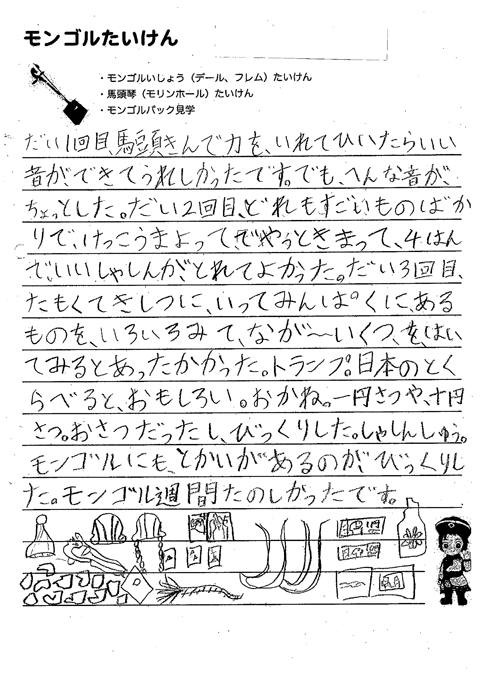 モンゴルたいけん
・モンゴルいしょう（デール、フレム）たいけん
・馬頭琴（モリンホール）たいけん
・モンゴルパック見学
だい1回目、馬頭きんで力を、いれてひいたらいい
音ができてうれしかったです。でも、へんな音が、
ちょっとした。だい2回目、どれもすごいものばか
りで、けっこうまよって やっときまって、4はん
で、いいしゃしんがとれてよかった。だい3回目、
たもくてきしつに、いってみんぱくに、ある
ものを、いろいろみて、なが〜いくつ、を、はい
てみるとあったかかった。トランプ。日本のとく
らべると、おもしろい。おかね。一円さつや、十円
さつ。おさつだったし、びっくりした。しゃしんしゅう。
モンゴルにも、とかいがあるのが、びっくりし
た。モンゴル週間たのしかったです。